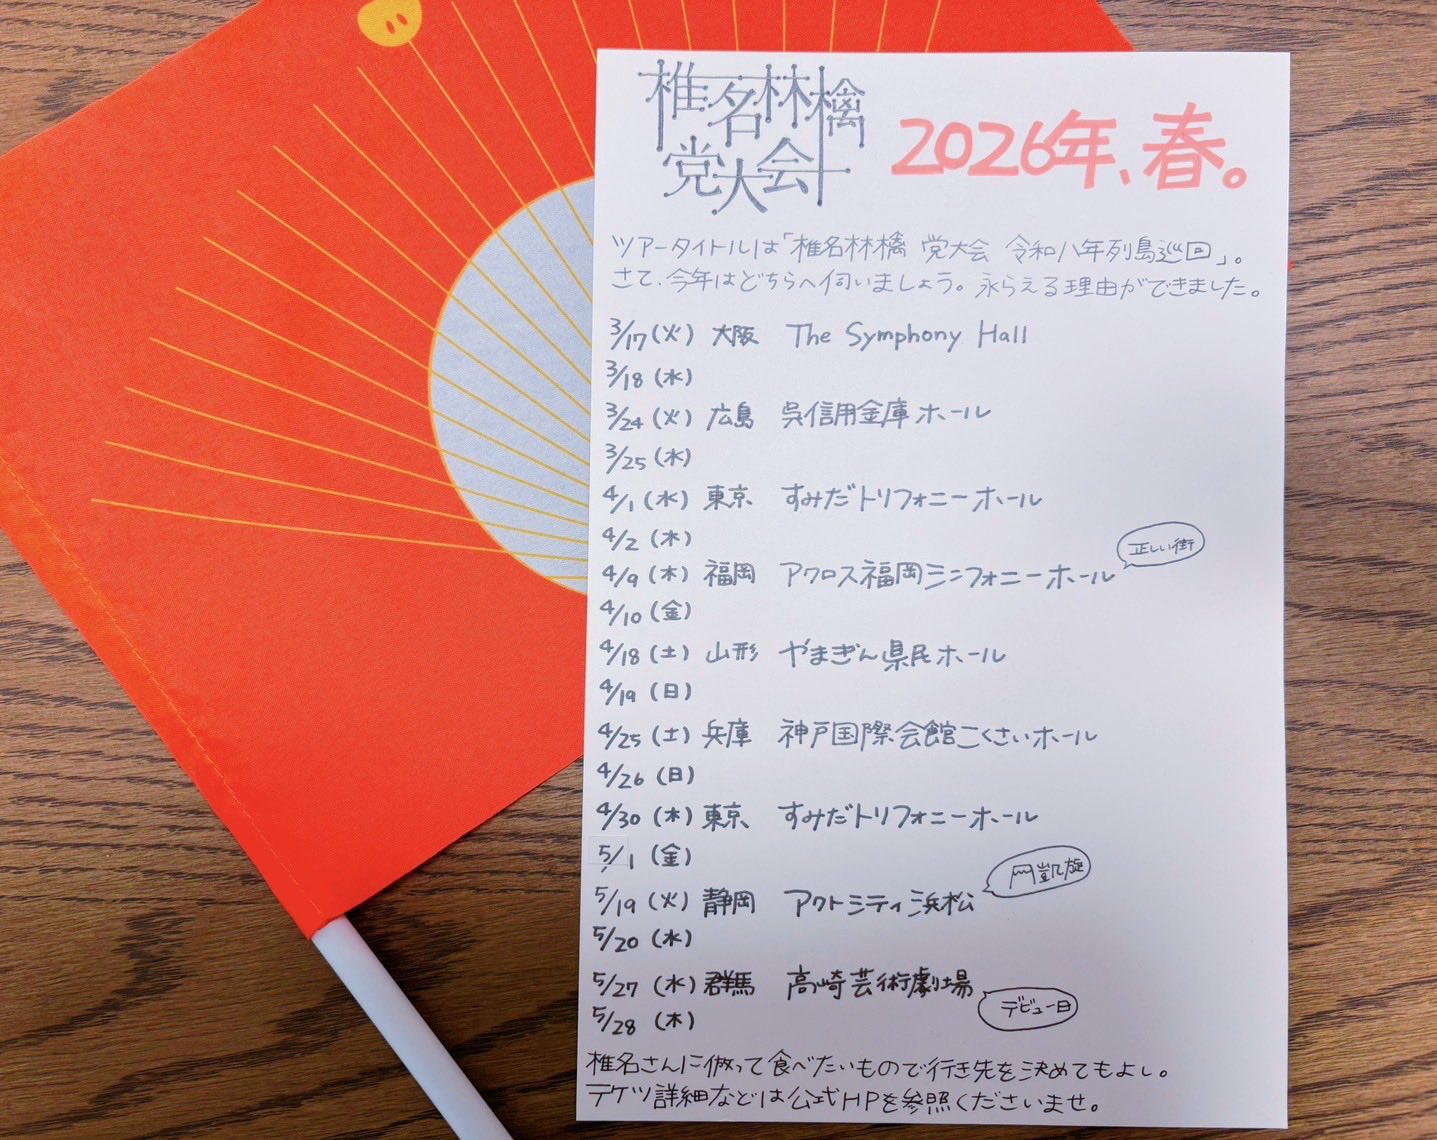 椎名林檎
党大会
2026年、春。
ツアータイトルは「椎名林檎 党大会 令和八年列島巡回」。
さて、今年はどちらへ伺いましょう。永らえる理由ができました。
3/17(火) 大阪 The Symphony Hall
3/18(水)
3/24(火) 広島 呉信用金庫ホール
3/25(水)
4/1(水) 東京 すみだトリフォニーホール
4/2(木)
正しい街
4/9(木) 福岡 アクロス福岡シンフォニーホール
4/10(金)
4/18(土) 山形 やまぎん県民ホール
4/19(日)
4/25(土) 兵庫 神戸国際会館こくさいホール
4/26(日)
4/30(木) 東京 すみだトリフォニーホール
5/1(金)
凱旋
5/19(火) 静岡 アクトシティ浜松
5/20(水)
5/27(水) 群馬 高崎芸術劇場
デビュー日
5/28(木)
椎名さんに倣って食べたいもので行き先を決めてもよし。
テケツ詳細などは公式HPを参照くださいませ。